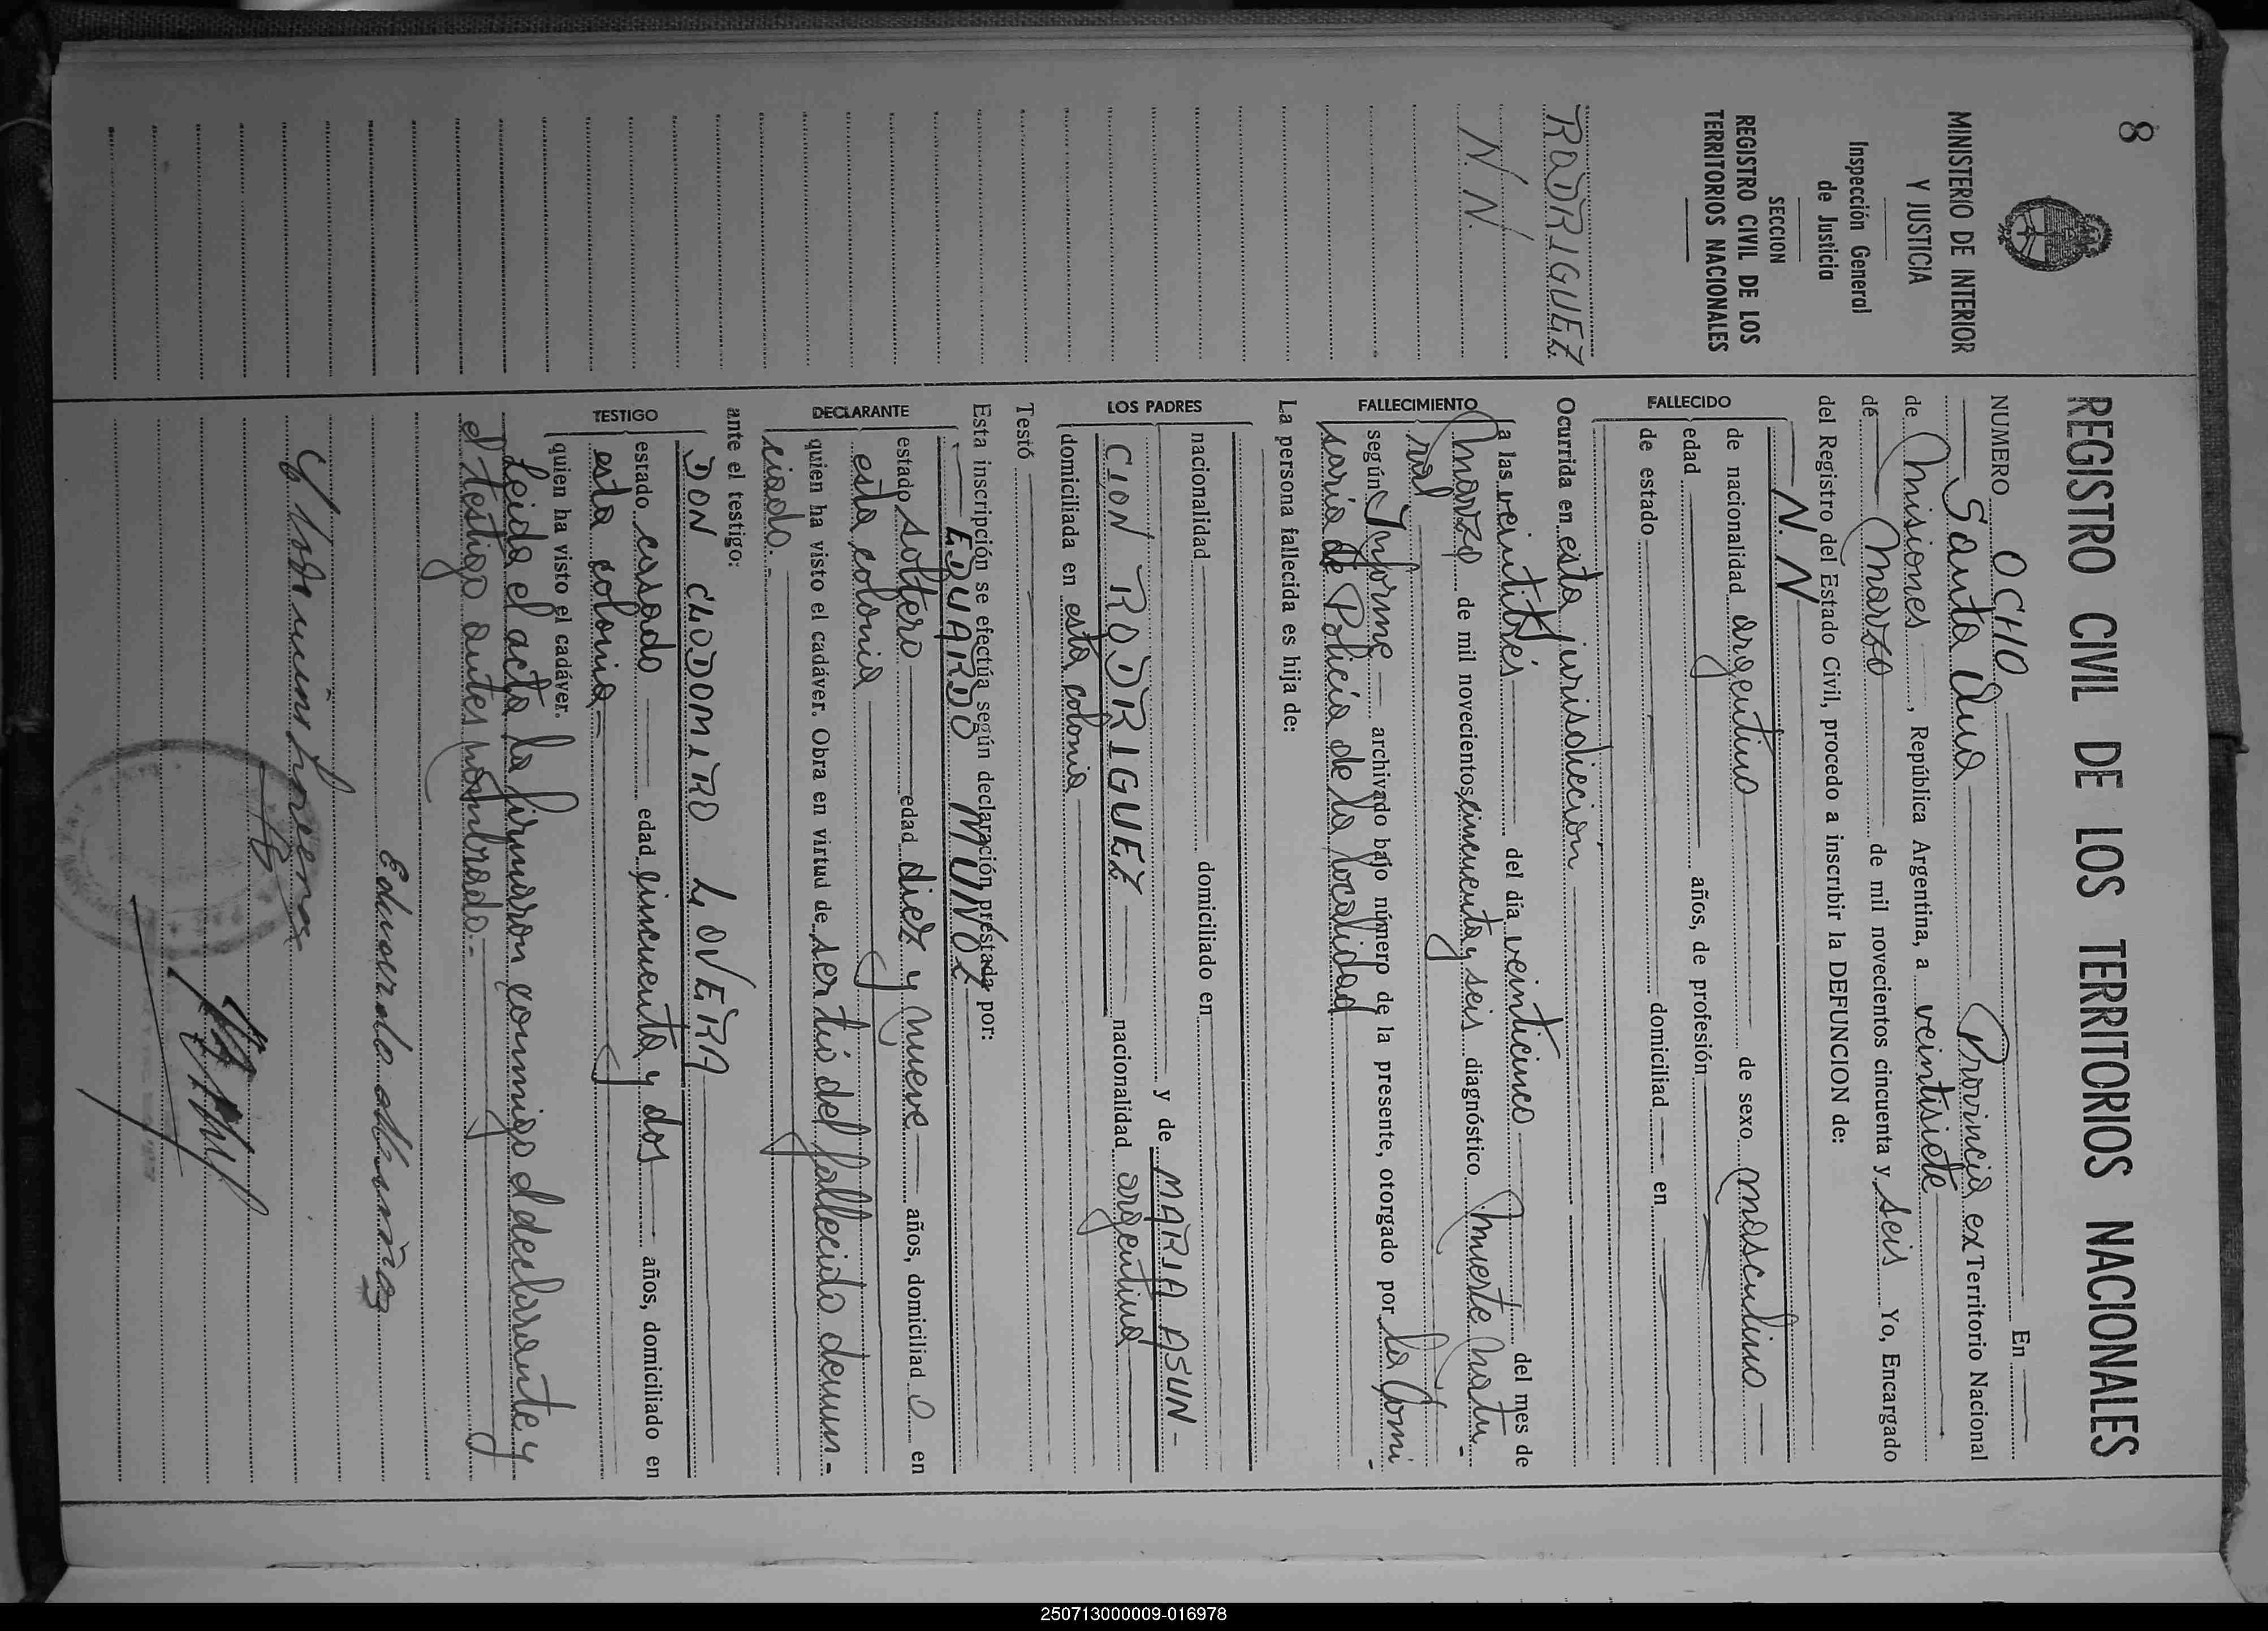 8
MINISTERIO DE INTERIOR
Y JUSTICIA
Inspección General
de Justicia
SECCION
REGISTRO CIVIL DE LOS
TERRITORIOS NACIONALES
RODRIGUEZ
N. N.
REGISTRO CIVIL DE LOS TERRITORIOS NACIONALES
NUMERO OCHO En
Santa Ana Provincia ex Territorio Nacional
de Misiones, República Argentina, a veintisiete
de Marzo de mil novecientos cincuenta y seis Yo, Encargado
del Registro del Estado Civil, procedo a inscribir la DEFUNCION de:
FALLECIDO
N. N
de nacionalidad argentino de sexo masculino
edad años, de profesión
de estado domiciliad en
Ocurrida en esta jurisdiccion
FALLECIMIENTO
a las veintitres del día veinticinco del mes de
marzo de mil novecientos cincuenta y seis diagnóstico muerte natu-
ral
según Informe archivado bajo número de la presente, otorgado por la Comi-
saria de Policia de la localidad
La persona fallecida es hija de:
LOS PADRES
nacionalidad domiciliado en
y de MARIA ASUN-
CION RODRIGUEZ nacionalidad argentina
domiciliada en esta colonia
Testó
Esta inscripción se efectúa según declaración prestada por:
DECLARANTE
EDUARDO MUÑOZ
estado soltero edad diez y nueve años, domiciliad o en
esta colonia
quien ha visto el cadáver. Obra en virtud de ser tio del fallecido denun-
ciado.-
ante el testigo:
TESTIGO
DON CLODOMIRO LOVERA
estado casado edad cincuenta y dos años, domiciliado en
esta colonia-
quien ha visto el cadáver.
Leida el acta la firmaron conmigo el declarante y
el testigo antes nombrado.-
Eduardo
250713000009-016978